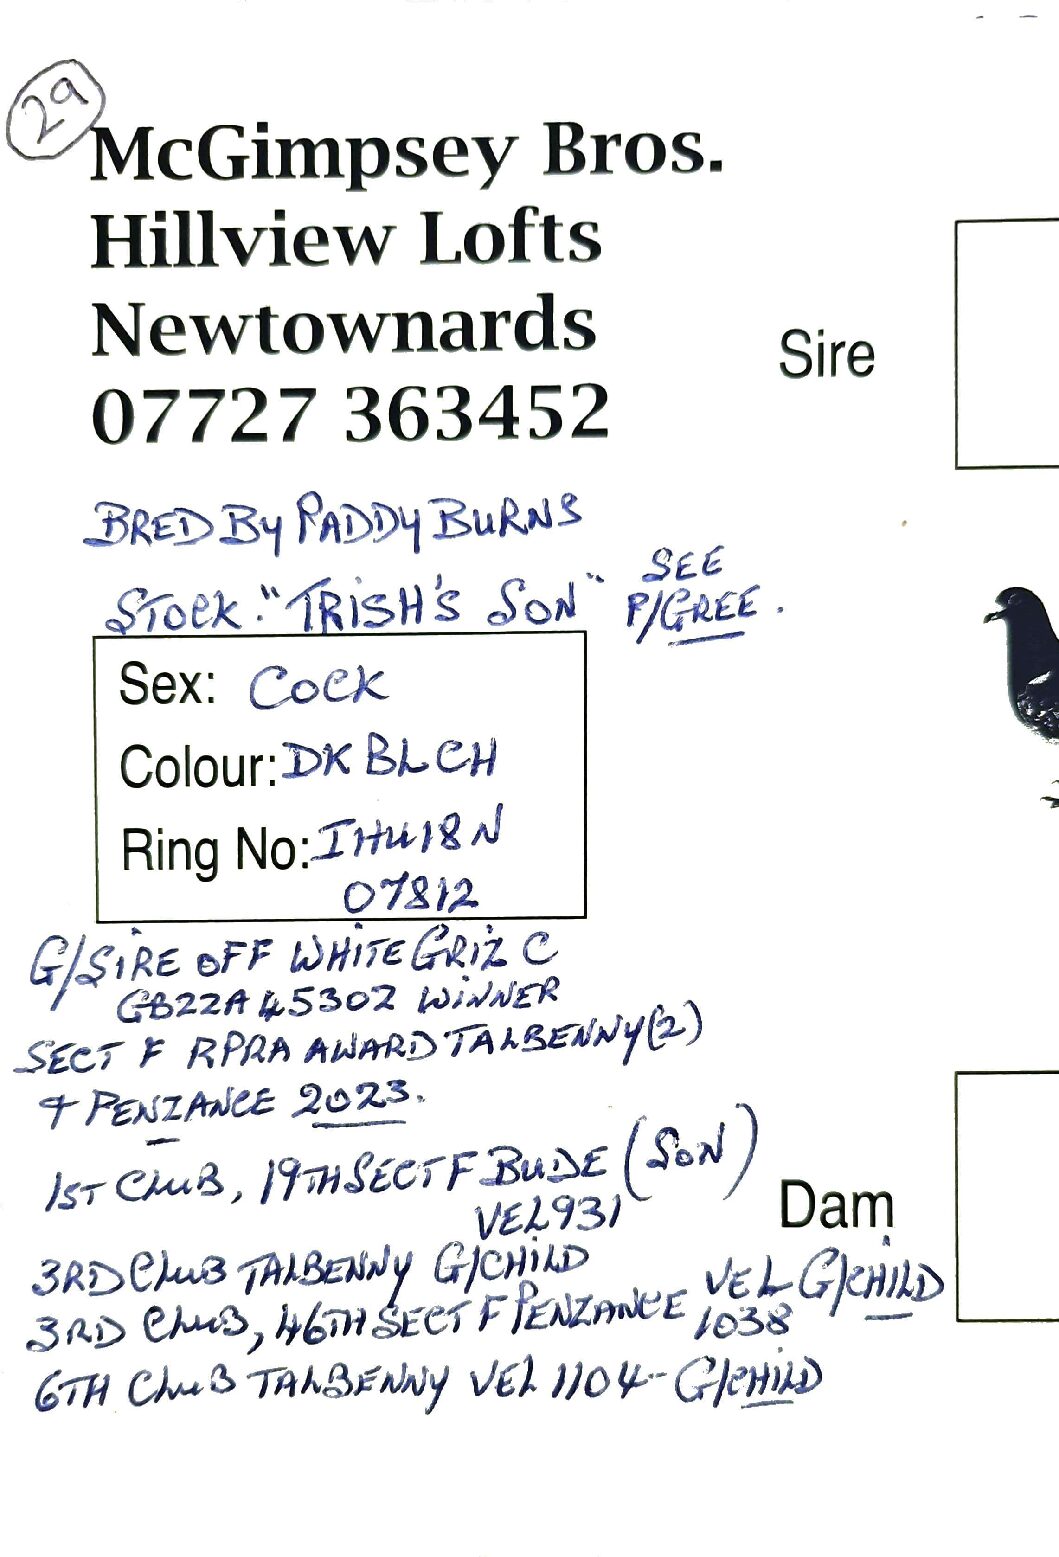 29
McGimpsey Bros.
Hillview Lofts
Newtownards
07727 363452
Sire
BRED By PADDy BURNS
STOCK. "TRISH'S SON" SEE
P/GREE.
Sex: COCK
Colour: DK BL CH
Ring No: IHU18N
07812
G/SIRE OFF WHITE GRIZ C
GB22A45302 WINNER
SECT F RPRA AWARD TALBENNY (2)
+ PENZANCE 2023.
1ST CLUB, 19TH SECT F BUDE (SON)
VEL 931
Dam
3RD CLUB TALBENNY G/CHILD
3RD CLUB, 46TH SECT F PENZANCE VEL G/CHILD
1038
6TH CLUB TALBENNY VEL 1104 - G/CHILD